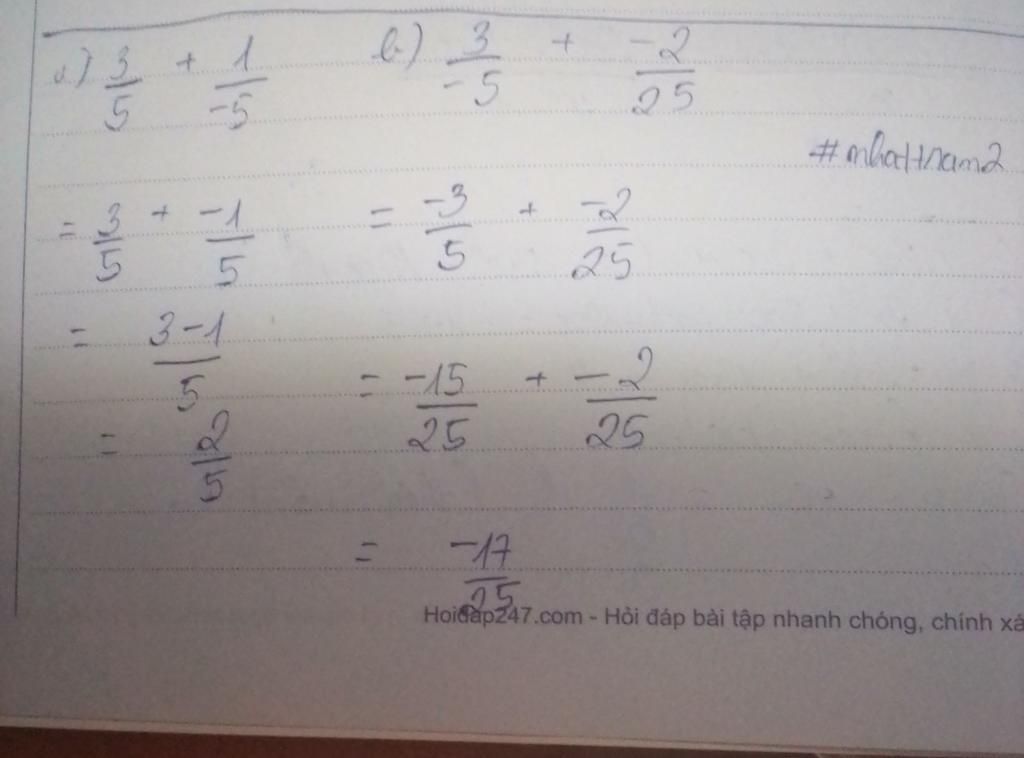 a) 3/5 + 1/-5
= 3/5 + -1/5
= 3-1/5
= 2/5
b) 3/-5 + -2/25
= -3/5 + -2/25
= -15/25 + -2/25
= -17/25
Hoidap247.com - Hỏi đáp bài tập nhanh chóng, chính xá